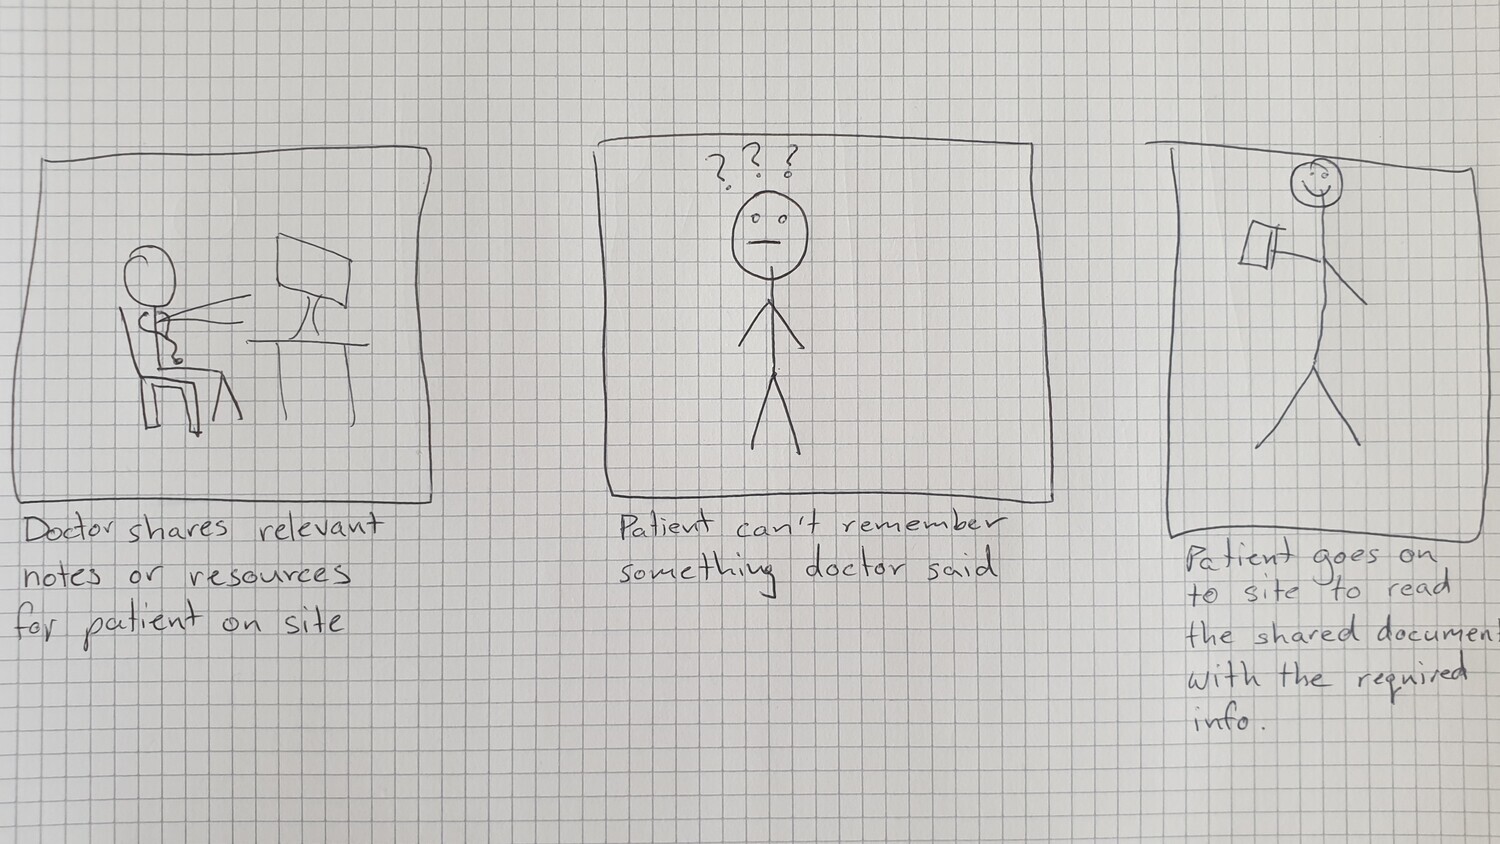 Doctor shares relevant
notes or resources
for patient on site
? ? ?
Patient can't remember
something doctor said
Patient goes on
to site to read
the shared document
with the required
info.